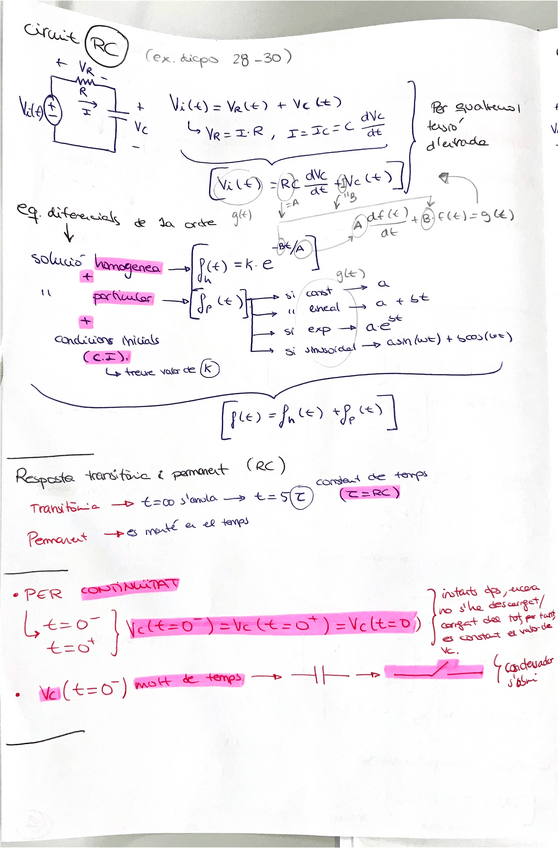 circuit RC (ex. diapo 28-30)
+ VR -
R
Vi(t) + - I + Vc -
Vi(t) = VR(t) + Vc(t)
↳ VR = I·R, I = Ic = C dVc/dt
Per qualsevol
tensió
d'entrada
[Vi(t) = RC dVc/dt + 1Vc(t)]
g(t) =A "B
A df(t)/dt + B f(t) = g(t)
eq. diferencials de 1a ordre
solució homogenea → [fh(t) = k·e^(-Bt/A)]
+
" particular → [fp(t)]
g(t)
si const → a
" lineal → a + bt
si exp → a·e^bt
si sinusoidal → asin(wt) + bcos(wt)
+
condicions inicials
(C.I).
↳ treure valor de k
[f(t) = fh(t) + fp(t)]
Resposta transitòria i permanent (RC)
Transitòria → t=∞ s'anula → t = 5τ constant de temps
(τ=RC)
Permanent → es manté en el temps
• PER CONTINUÏTAT
↳ t=0⁻
t=0⁺
Vc(t=0⁻) = Vc(t=0⁺) = Vc(t=0)
instants dps, encara
no s'ha descarregat/
carregat del tot, per tant,
es constant el valor de
Vc.
• Vc(t=0⁻) molt de temps → →
condensador
s'obri